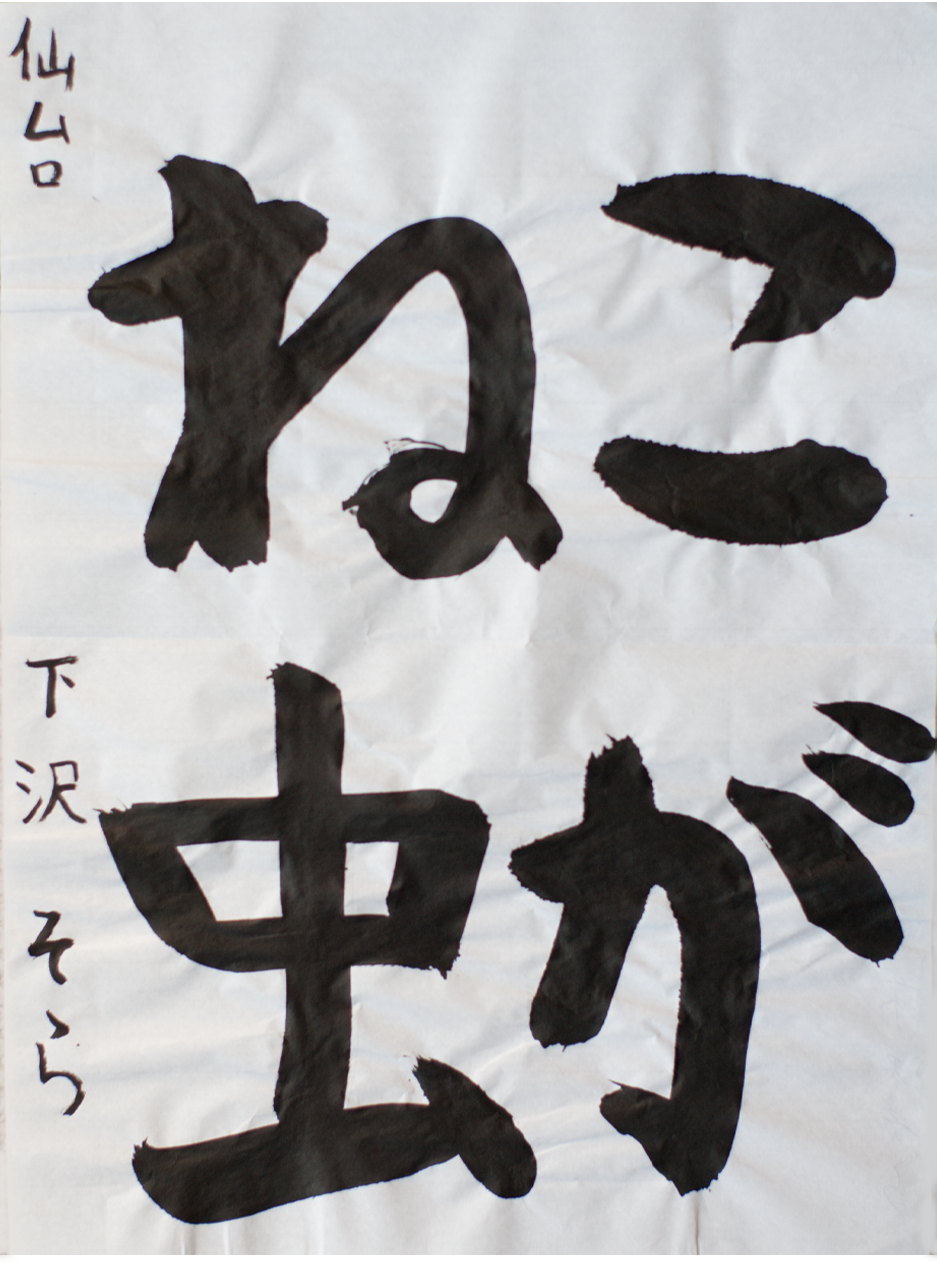 こが
ね虫
仙台 下沢 そら